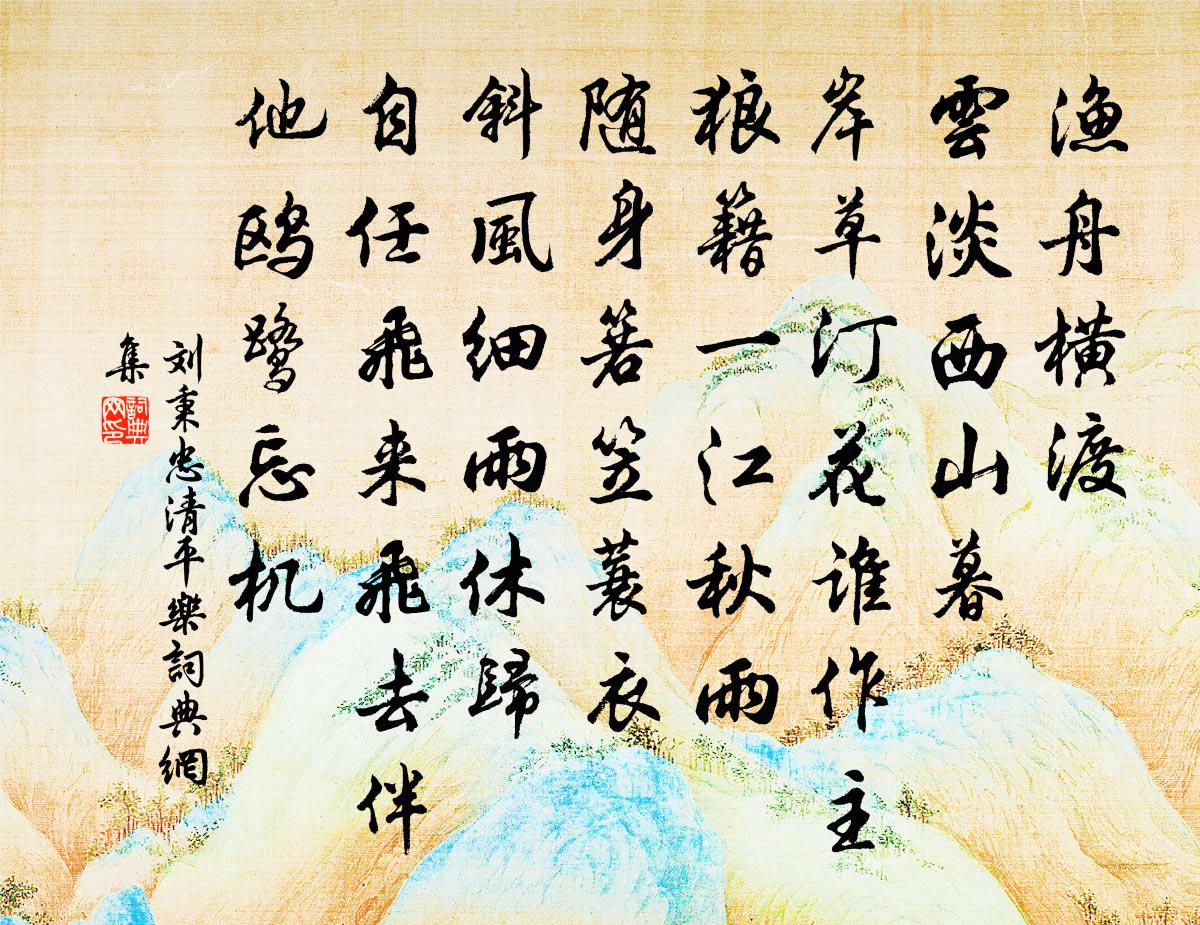 渔舟横渡
雲淡西山暮
岸草汀花谁作主
狼籍一江秋雨
随身箬笠蓑衣
斜風细雨休歸
自任飛来飛去伴
他鸥鹭忘机
刘秉忠清平樂詞典網
集
詞典网印